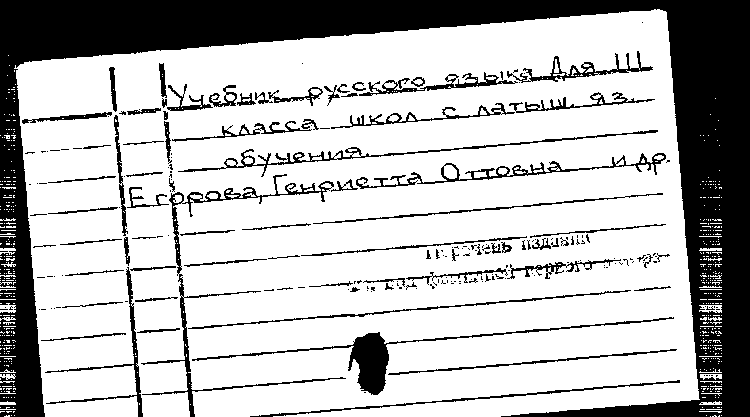 Учебник русского языка Для III
класса школ с латыш. яз.
обучения.
Егорова, Генриетта Оттовна и др.
Перечень изданий
под фамилией первого автора